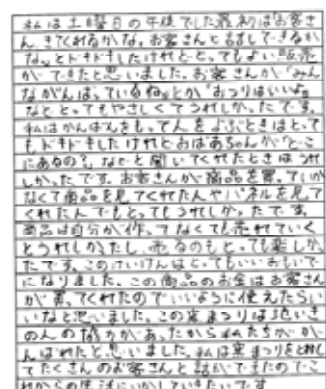 私は土曜日の午後でした。最初はお客さ
ん、きてくれるかな、お客さんと話しできるか
な。とドキドキしたけれどとってもよい販売
ができたと思いました。お客さんが「みん
ながんばっているね」とか「おつりはいいよ」
などとってもやさしくてうれしかったです。
私はかんばんをもって人をよぶときはとって
もドキドキしたけれどおばあちゃんが「どこ
にあるの?」などと聞いてくれたときはうれ
しかったです。お客さんが商品を買っていか
なくて商品を見てくれた人やパネルを見て
くれた人でもとってもうれしかったです。
商品は自分が作ってなくても売れていく
とうれしかったし、売るのもとっても楽しか
たです。このけいけんはとってもいいおもいで
になりました。この商品のお金はお客さん
が買ってくれたのでいいように使えたらい
いなと思いました。この実まつりは地いき
の人の協力があったから私たちがが
んばれたと思いました。私は実まつりを
てたくさんのお客さんと話ができたのでこ
れからの生活にいかしていきたいです。